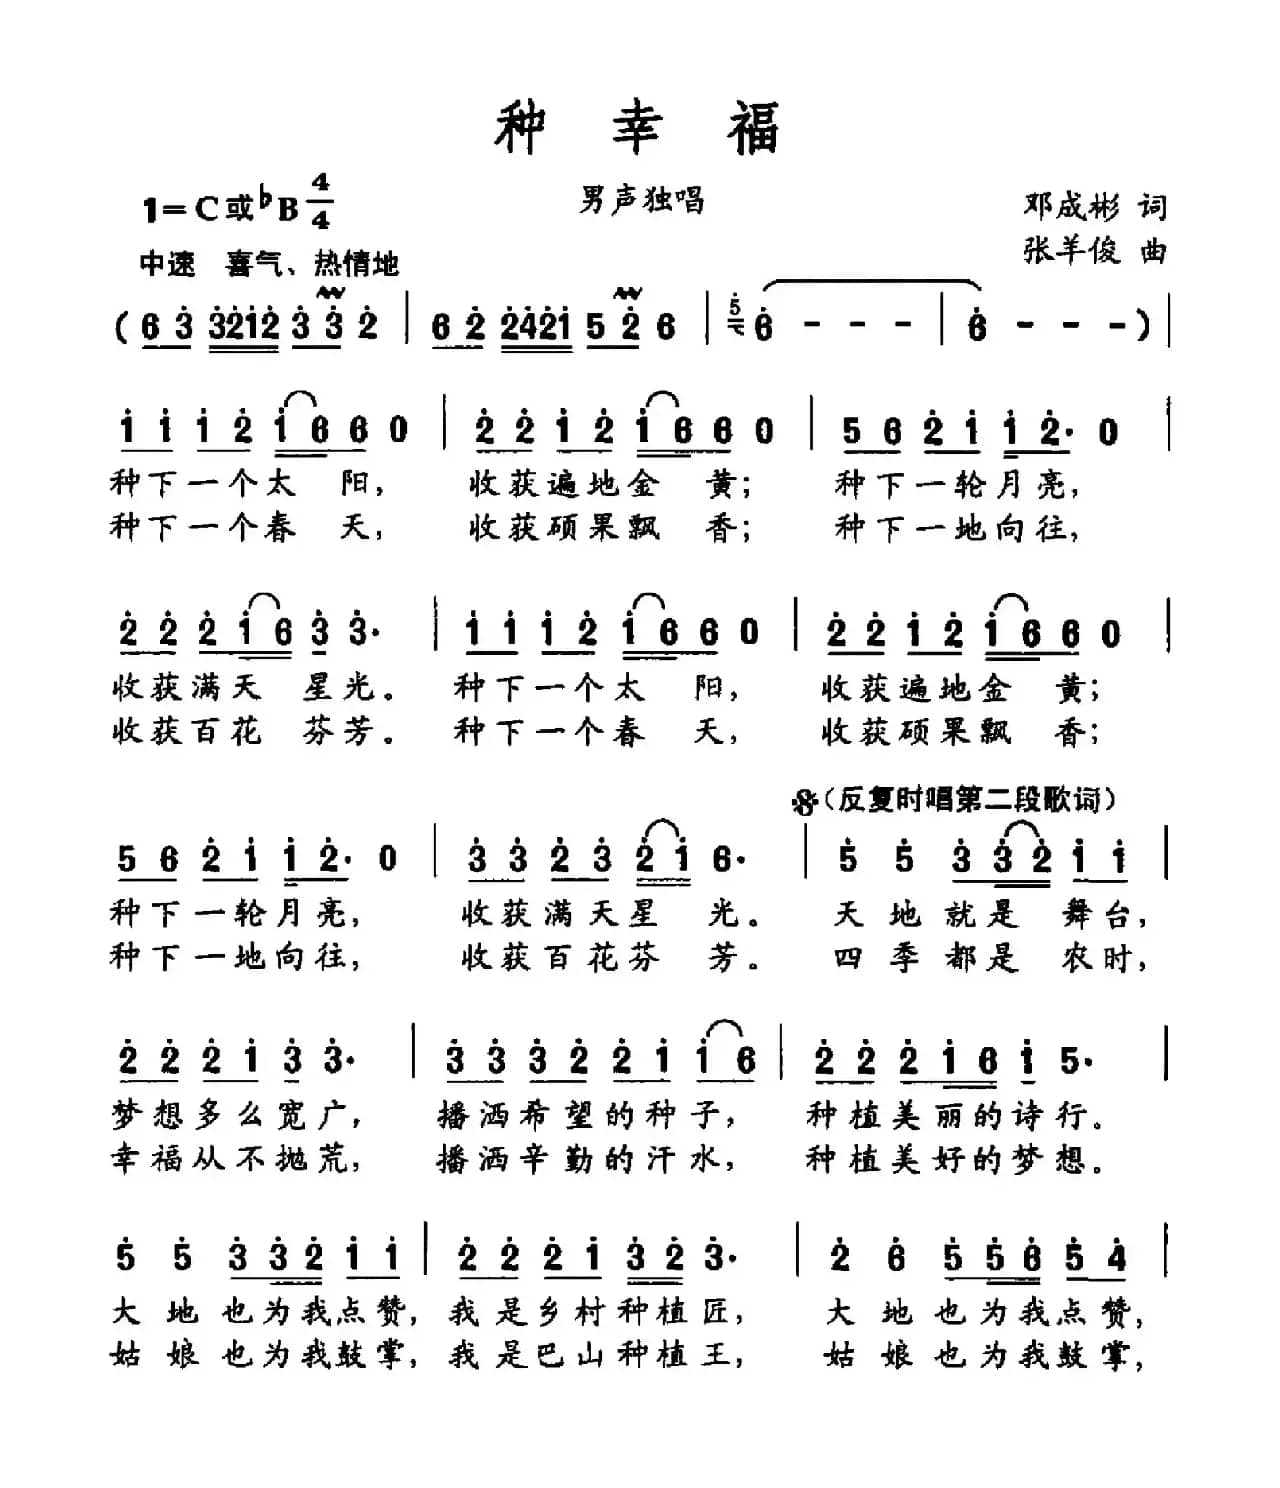 种 幸 福
1=C或♭B 4/4
男声独唱
邓成彬 词
中速 喜气、热情地
张羊俊 曲
(6 3 3212 3 3 2 | 6 2 2421 5 2 6 | 5 6 - - - | 6 - - - ) |
1 1 1 2 1 6 6 0 | 2 2 1 2 1 6 6 0 | 5 6 2 1 1 2· 0 |
种下一个太 阳, 收获遍地金 黄; 种下一轮月亮,
种下一个春 天, 收获硕果飘 香; 种下一地向往,
2 2 2 1 6 3 3· | 1 1 1 2 1 6 6 0 | 2 2 1 2 1 6 6 0 |
收获满天 星光。 种下一个太 阳, 收获遍地金 黄;
收获百花 芬芳。 种下一个春 天, 收获硕果飘 香;
𝄋(反复时唱第二段歌词)
5 6 2 1 1 2· 0 | 3 3 2 3 2 1 6· | 5 5 3 3 2 1 1 |
种下一轮月亮, 收获满天星 光。 天地就是 舞台,
种下一地向往, 收获百花芬 芳。 四季都是 农时,
2 2 2 1 3 3· | 3 3 3 2 2 1 1 6 | 2 2 2 1 6 1 5· |
梦想多么宽广, 播洒希望的种子, 种植美丽的诗行。
幸福从不抛荒, 播洒辛勤的汗水, 种植美好的梦想。
5 5 3 3 2 1 1 | 2 2 2 1 3 2 3· | 2 6 5 5 6 5 4 |
大地也为我点赞, 我是乡村种植匠, 大地也为我点赞,
姑娘也为我鼓掌, 我是巴山种植王, 姑娘也为我鼓掌,